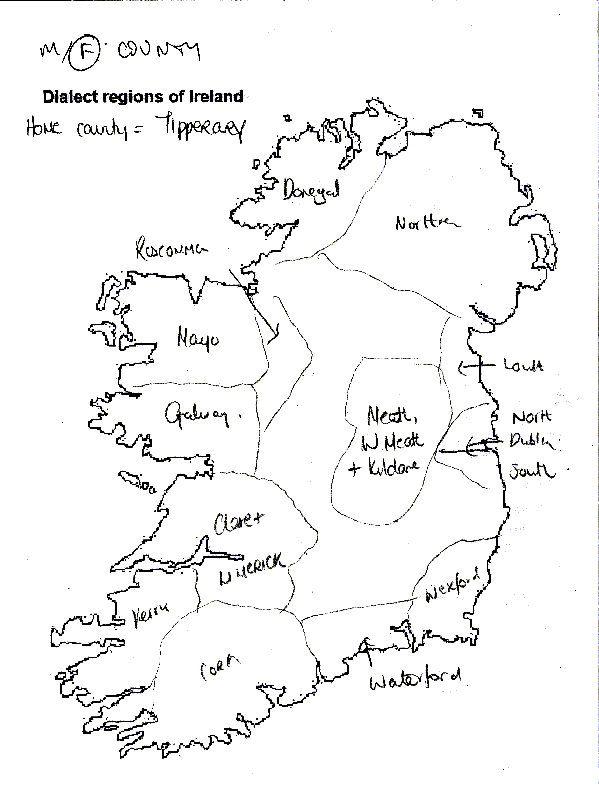 M/F. COUNTY
Dialect regions of Ireland
HOME county = Tipperary
Donegal
Northern
ROSCOMMON
Mayo
Louth
Galway.
Meath,
W Meath
+ Kildare
North
Dublin
South
Clare +
LIMERICK
Kerry
Wexford
Cork
Waterford